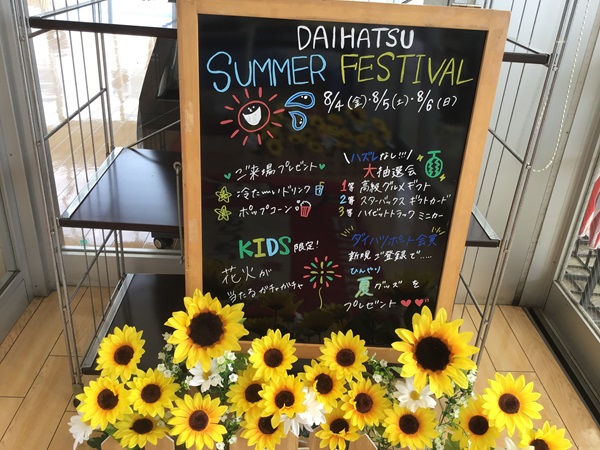 DAIHATSU
SUMMER FESTIVAL
8/4(金)・8/5(土)・8/6(日)
ご来場プレゼント
冷た〜いドリンク
ポップコーン
KIDS限定!
花火が
当たるガチャガチャ
ハズレなし!!!
大抽選会
1等 高級グルメギフト
2等 スターバックス ギフトカード
3等 ハイゼットトラック ミニカー
ダイハツポート会員
新規ご登録で.....
ひんやり
夏グッズを
プレゼント